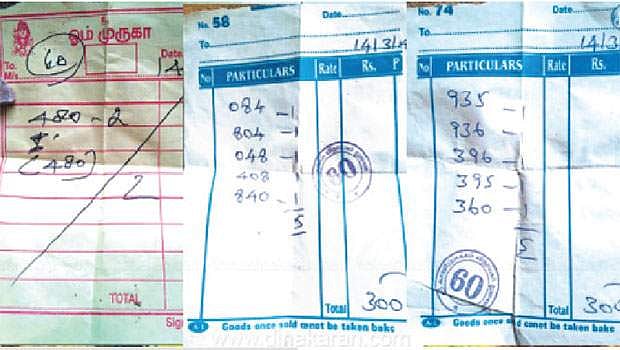 ஓம் முருகா
To.
M/s
60
Date
480 - 2
(480)
2
TOTAL
Sig
No. 58
Date
To
14/3/
No PARTICULARS Rate Rs. P
084 - 1
804 - 1
048 - 1
408
840 - 1
5
60
Total 300
A-1 Goods once sold cannot be taken bake
No. 74
Date
To
14/3/
No PARTICULARS Rate Rs.
935 - 1
936 - 1
396 - 1
395 - 1
360 - 1
5
60
Total 300
Goods once sold cannot be taken bake
www.dinakaran.com